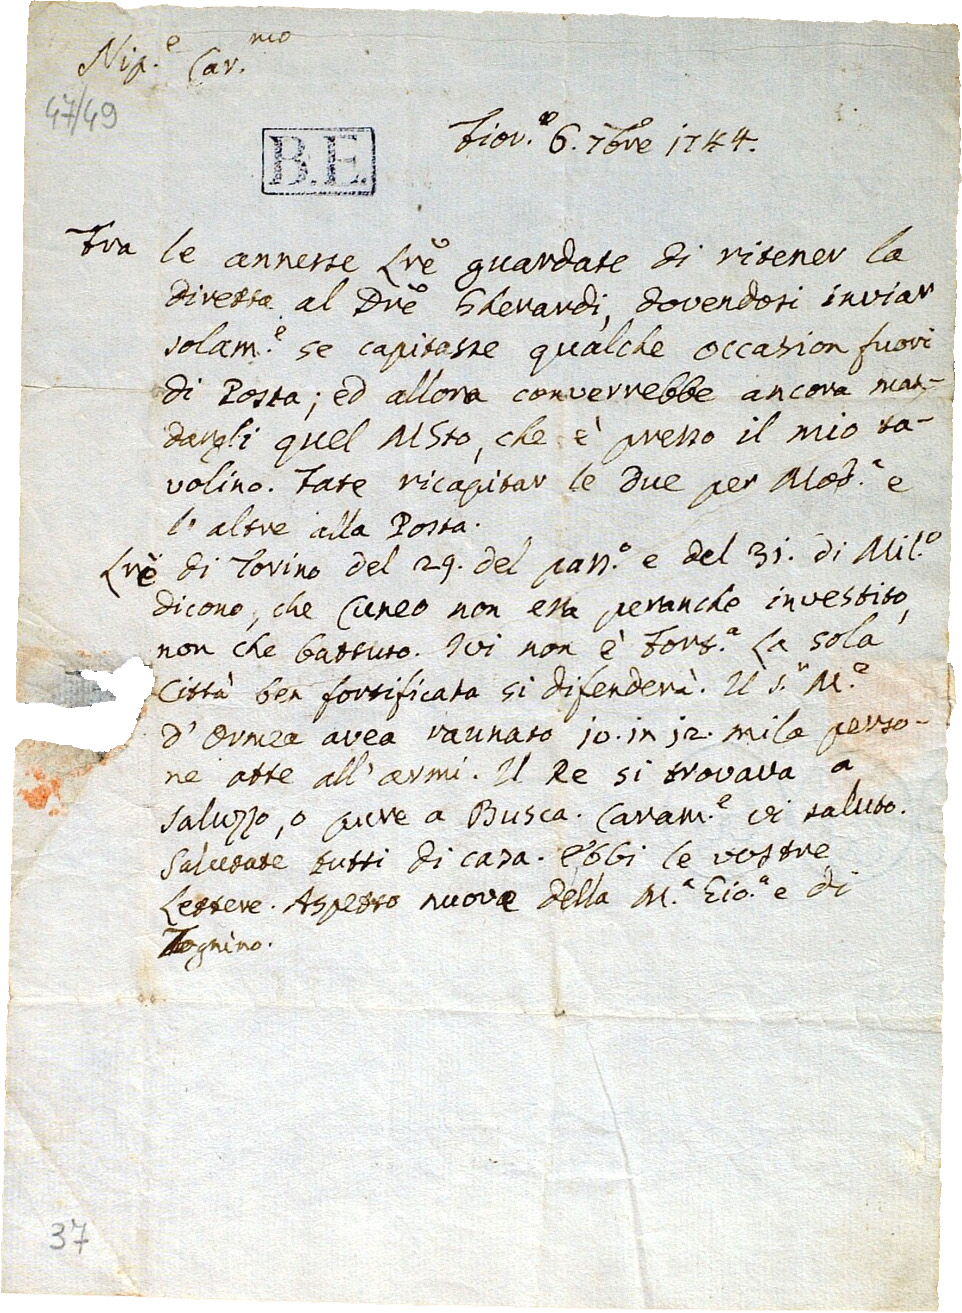 Nip.e Car.mo
47/49
B.E.
Fior.o 6. 7bre 1744.
Fra le annesse Lre guardate di ritener la
diretta al Dre Gherardi, dovendosi inviar
solam.e se capitasse qualche occasion fuori
di Posta; ed allora converrebbe ancora man-
dargli quel MSto, che è presso il mio ta-
volino. Fate ricapitar le due per Mod.a e
l'altre alla Posta.
Lre di Torino del 29. del pass.o e del 31. di Mil.o
dicono, che Cuneo non era peranche investito,
non che battuto. Ivi non è Fort.a La sola
Città ben fortificata si difenderà. Il S. M.e
d'Ormea avea raunato 10. in 12. mila perso-
ne atte all'armi. Il Re si trovava a
Saluzzo, o pure a Busca. Caram.e vi saluto.
Salutate tutti di casa. Ebbi le vostre
Lettere. Aspetto nuove della M.a Gio.a e di
Tognino.
37